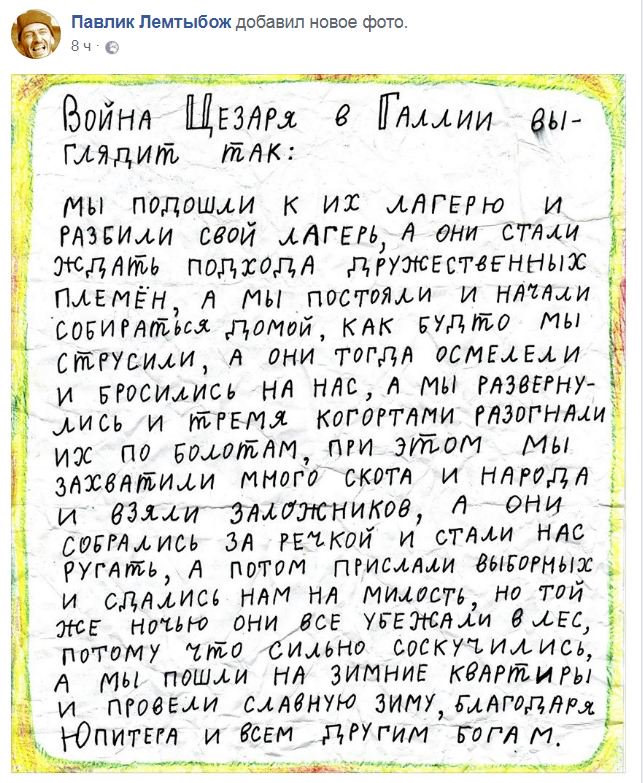 Павлик Лемтыбож добавил новое фото.
8 ч ·
Война Цезаря в Галлии вы-
глядит так:
мы подошли к их лагерю и
разбили свой лагерь, а они стали
ждать подхода дружественных
племён, а мы постояли и начали
собираться домой, как будто мы
струсили, а они тогда осмелели
и бросились на нас, а мы разверну-
лись и тремя когортами разогнали
их по болотам, при этом мы
захватили много скота и народа
и взяли заложников, а они
собрались за речкой и стали нас
ругать, а потом прислали выборных
и сдались нам на милость, но той
же ночью они все убежали в лес,
потому что сильно соскучились,
а мы пошли на зимние квартиры
и провели славную зиму, благодаря
Юпитера и всем другим богам.